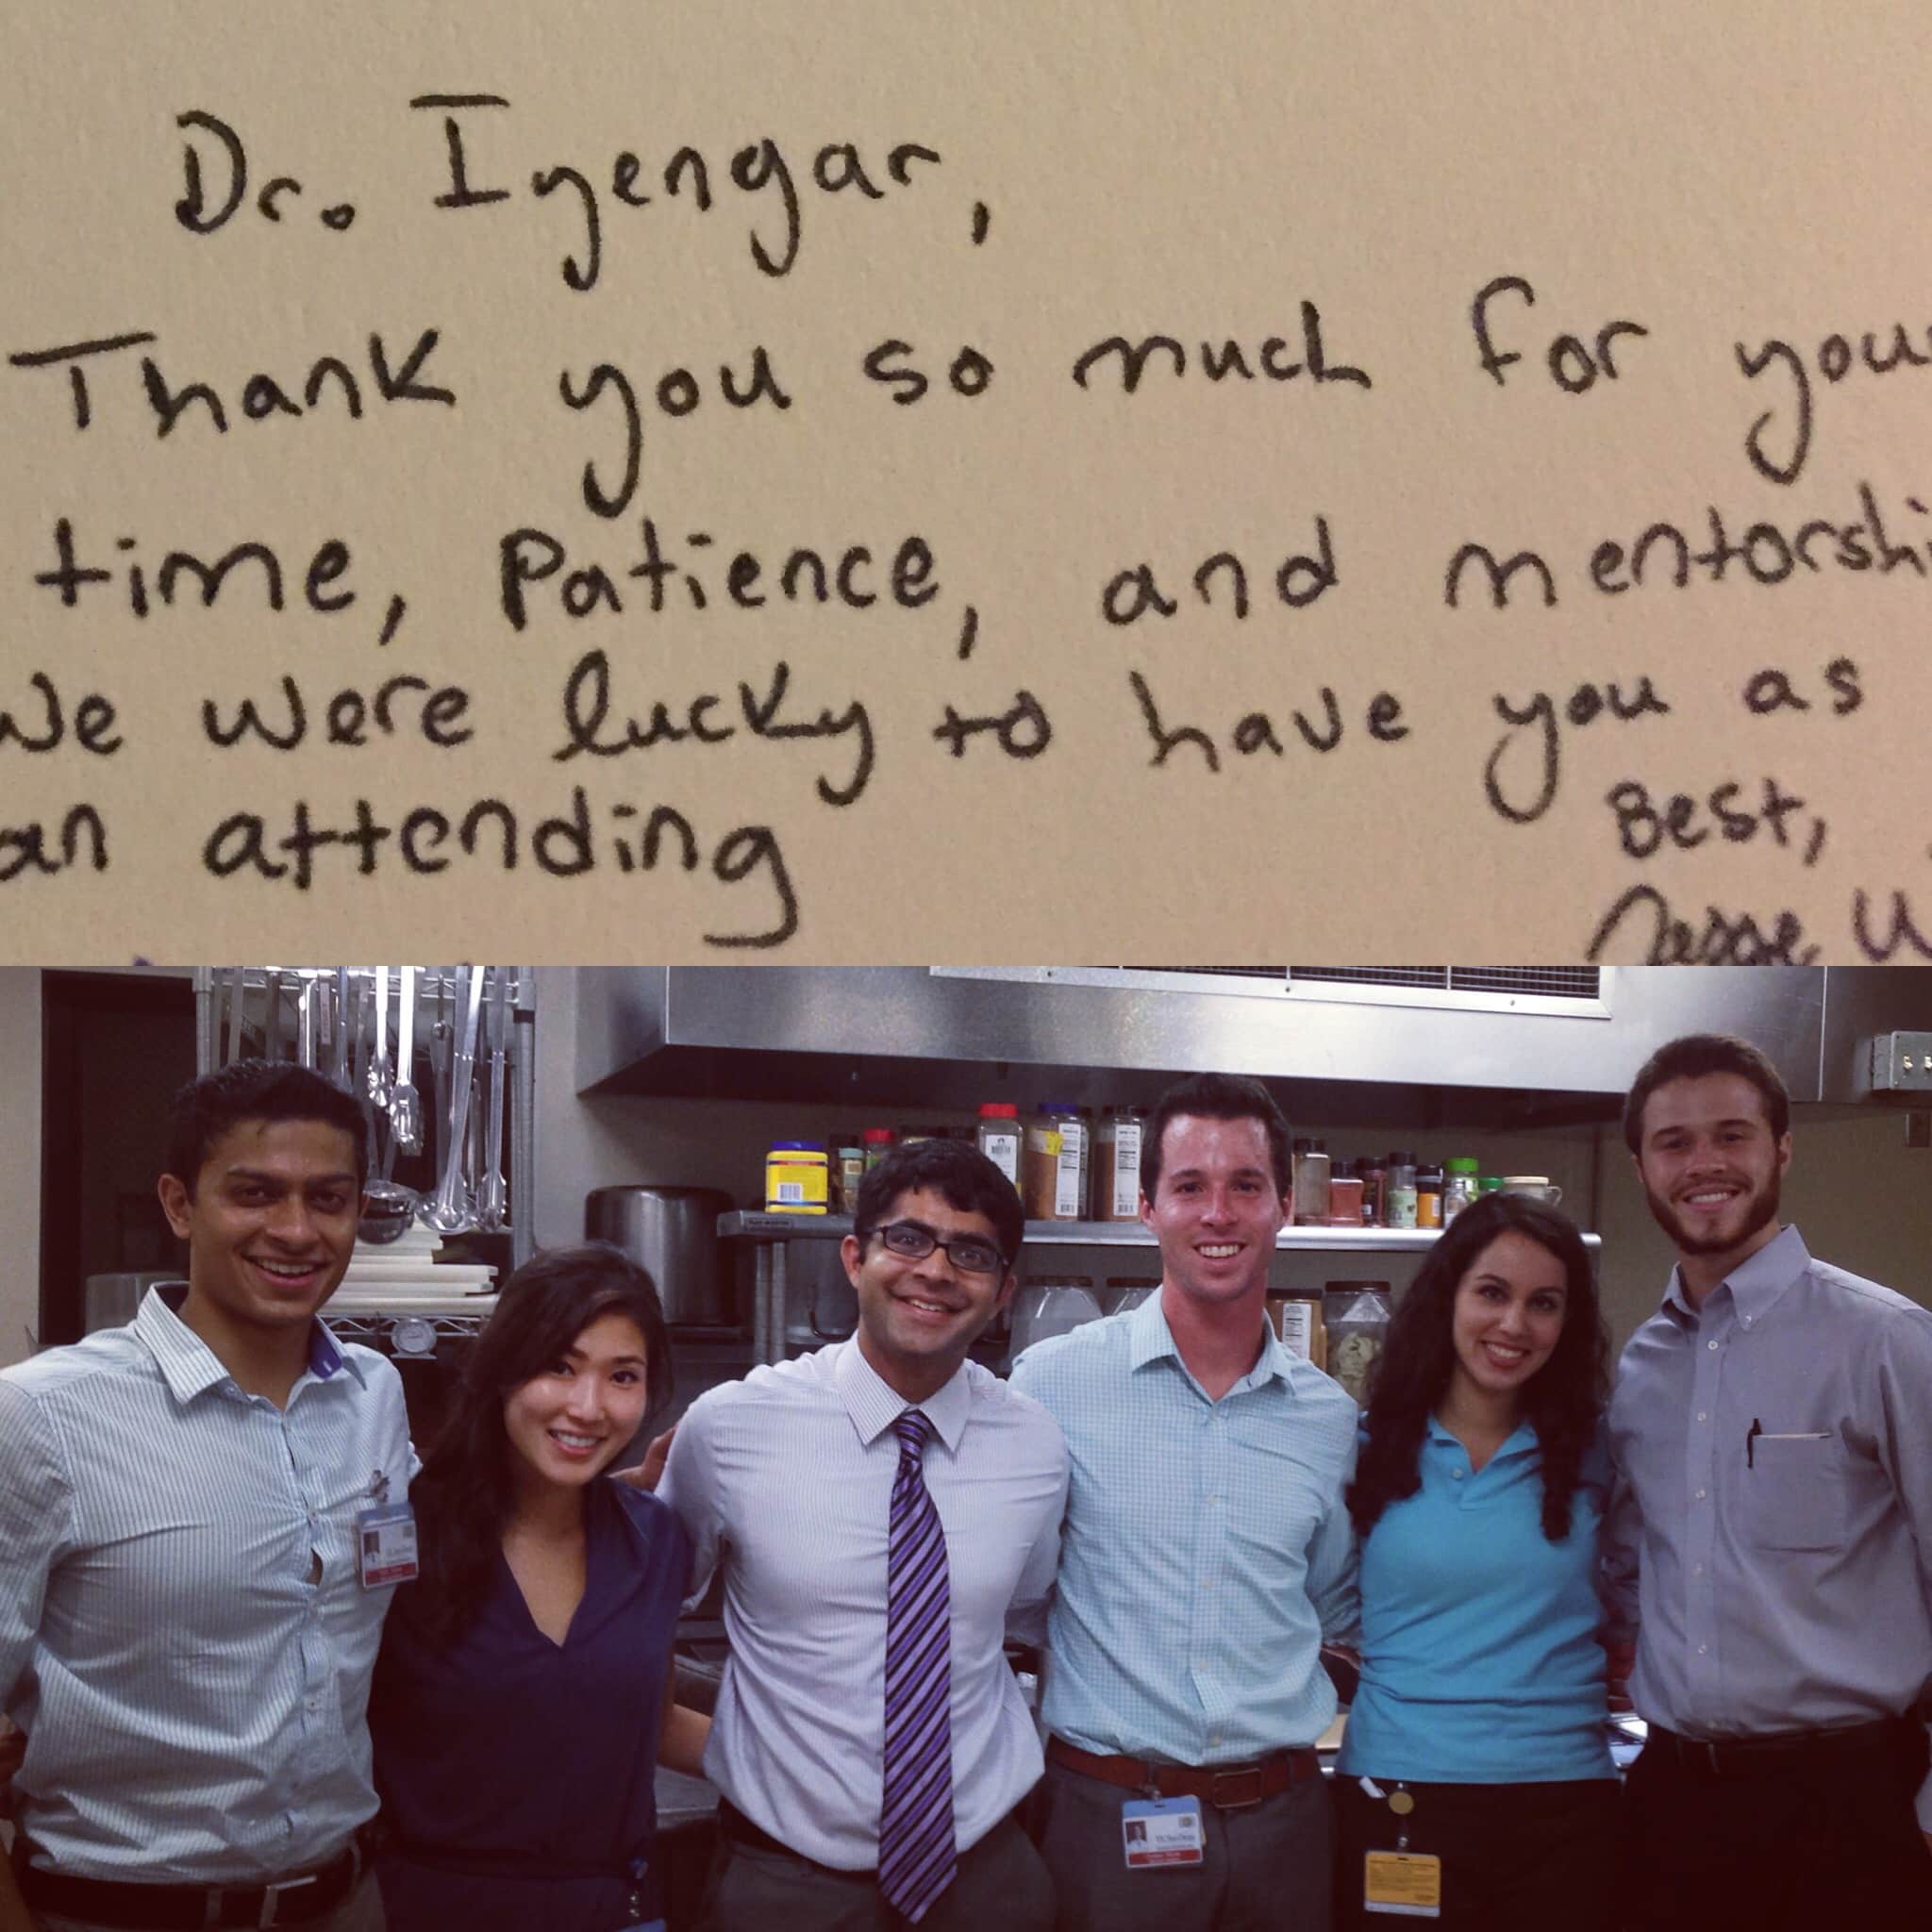 Dr. Iyengar,
Thank you so much for your
time, Patience, and mentorshi
We were lucky to have you as
an attending
Best,
Jesse W